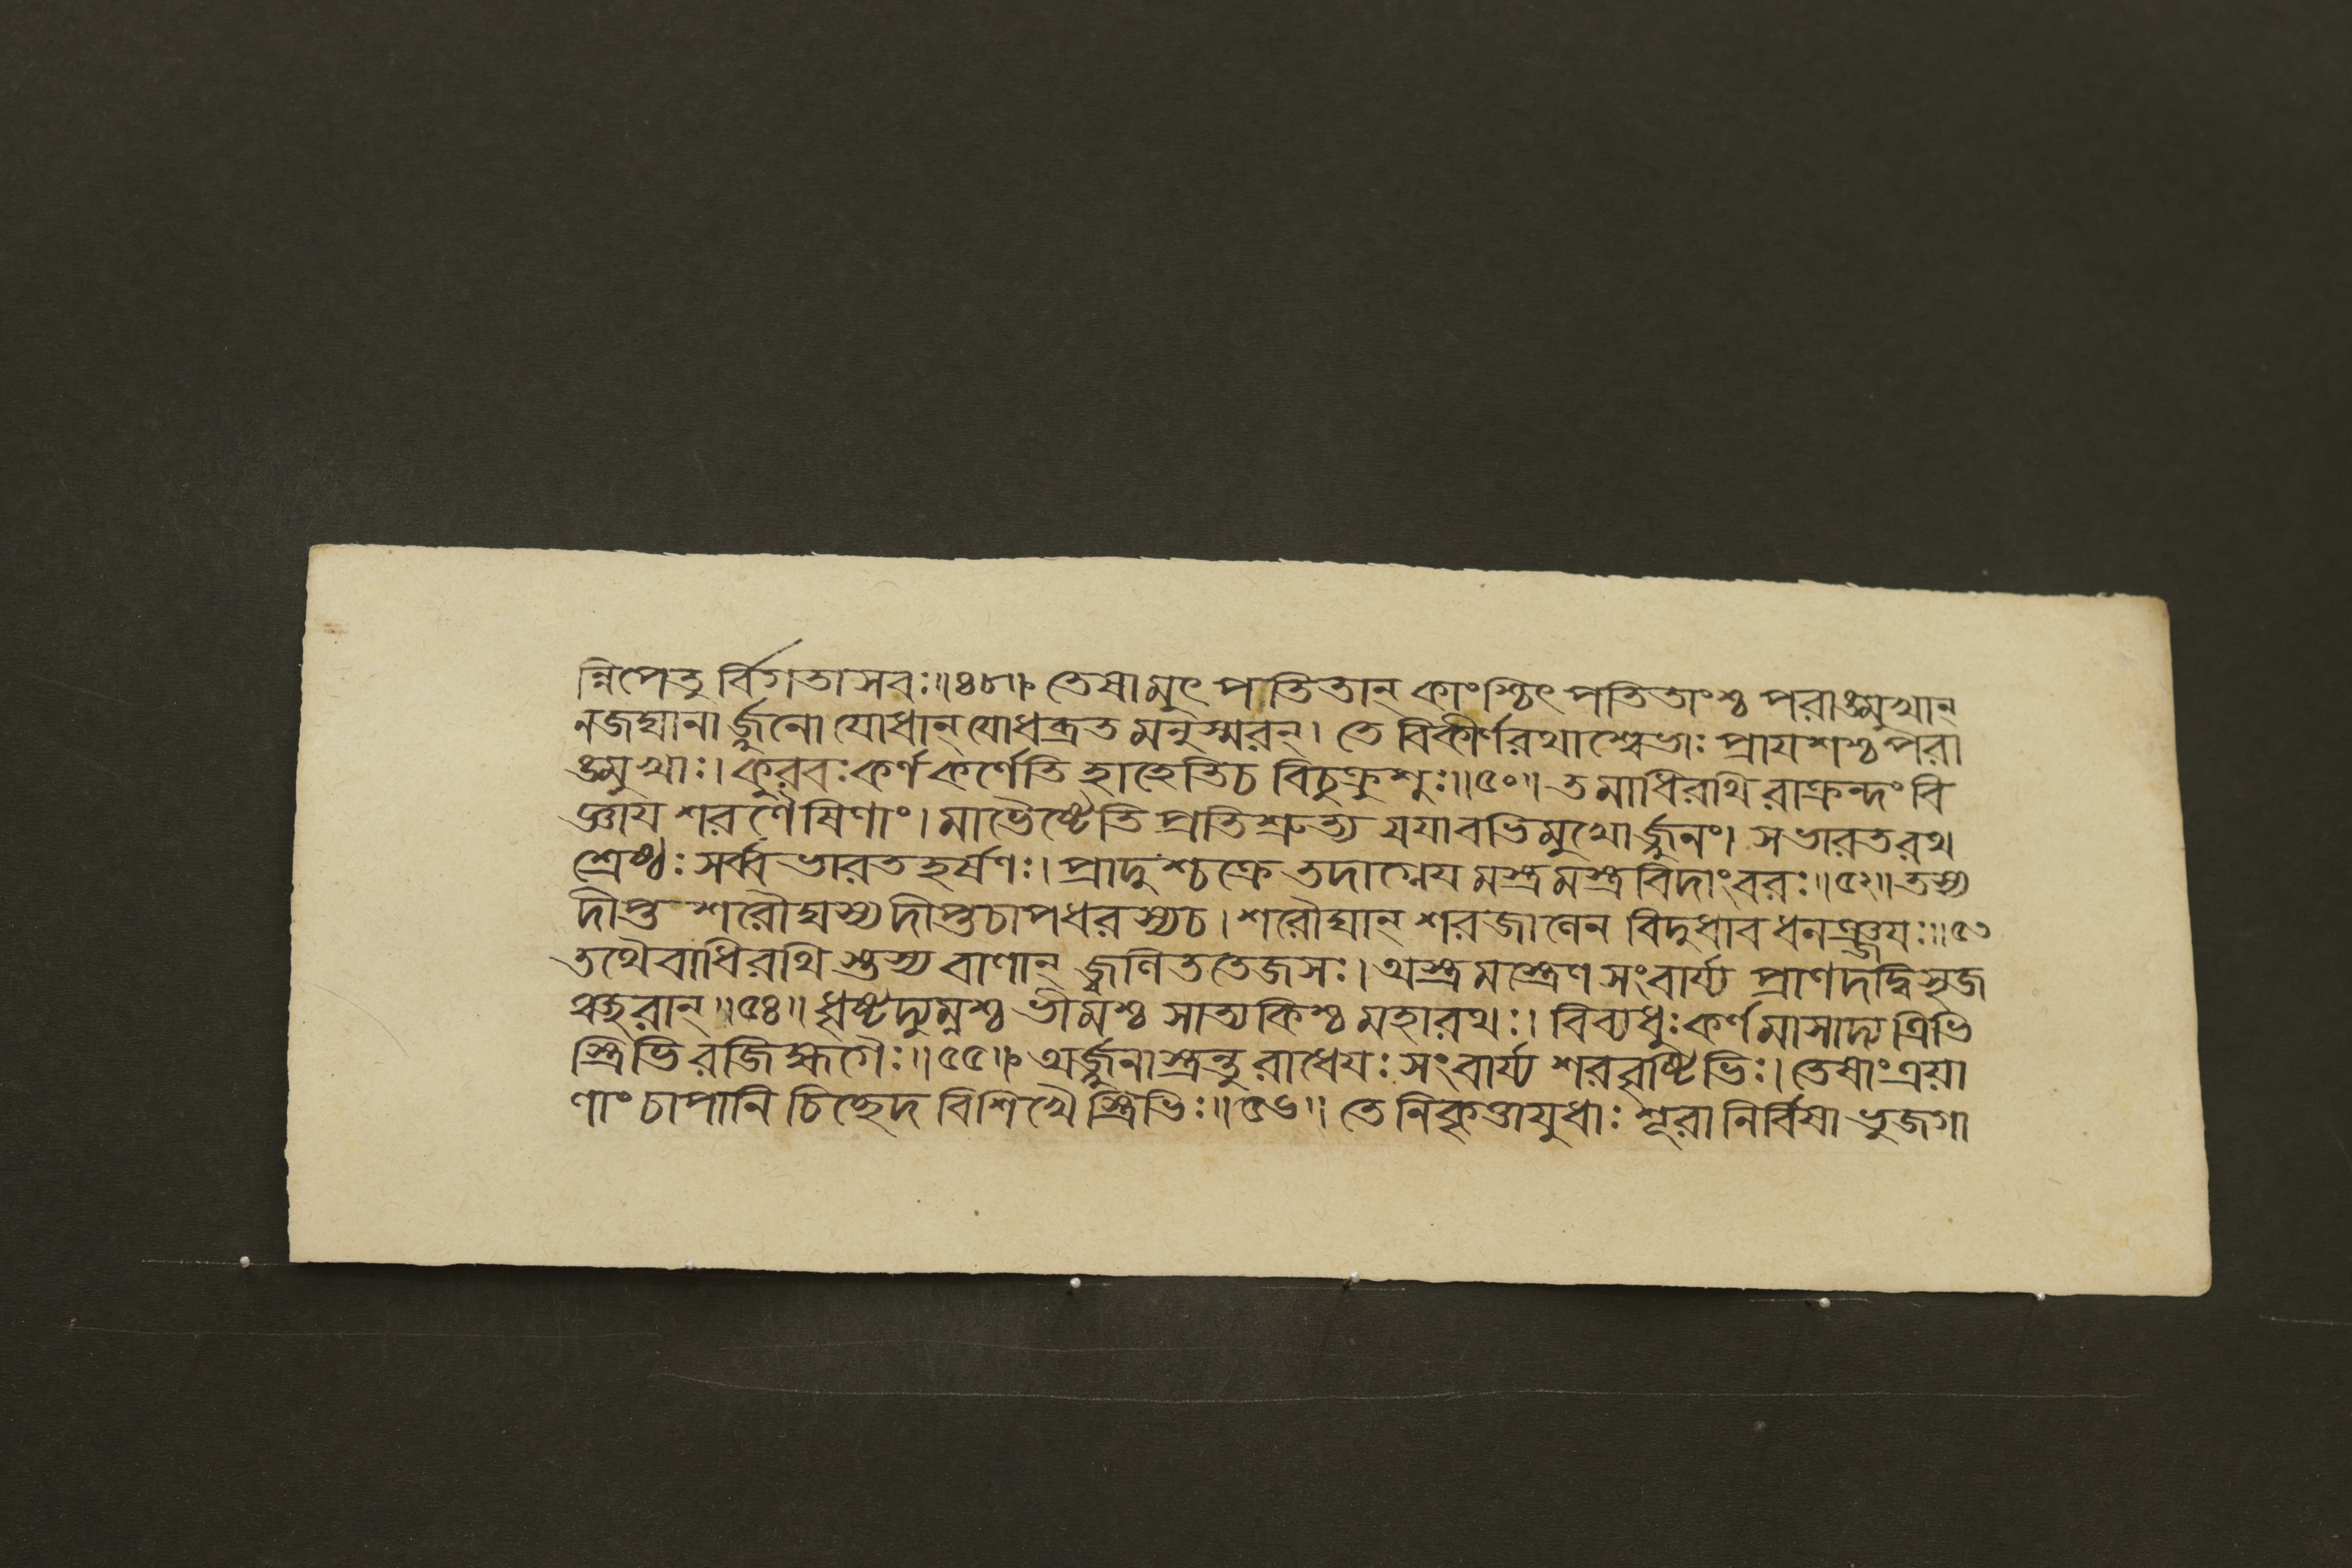 ন্নিপেতু র্বিগতাসবঃ॥৪৮॥ তেষামুৎ পতিতান্ কাংশ্চিৎ পতিতাংশ্চ পরাঙ্মুখান্
নজঘানা র্জ্জুনো যোধান্ যোধব্রত মনুস্মরন্। তে বিকীর্ণরথাশ্বেভাঃ প্রাযশশ্চ পরা
ঙ্মুখাঃ। কুরবঃ কর্ণ কর্ণেতি হাহেতিচ বিচুক্রুশুঃ॥৫০॥ তমাধিরথি রাক্রন্দং বি
জ্ঞায শরণৈষিণাং। মাভৈষ্টেতি প্রতিশ্রুত্য যযাবভিমুখোর্জ্জুনং। সভারতরথ
শ্রেষ্ঠঃ সর্ব্ব ভারত হর্ষণঃ। প্রাদুশ্চক্রে তদাগ্নেয মস্ত্রমস্ত্রবিদাংবরঃ॥৫২॥ তস্য
দীপ্ত শরৌঘস্য দীপ্তচাপধরস্যচ। শরৌঘান্ শরজালেন বিদুধাব ধনঞ্জযঃ॥৫৩
তথৈবাধিরথি স্তস্য বাণান্ জ্বলিততেজসঃ। অস্ত্রমস্ত্রেণ সংবার্য্য প্রাণদদ্বিসৃজ
ঞ্ছরান্॥৫৪॥ ধৃষ্টদ্যুম্নশ্চ ভীমশ্চ সাত্যকিশ্চ মহারথঃ। বিব্যধুঃ কর্ণমাসাদ্য ত্রিভি
স্ত্রিভি রজিহ্মগৈঃ॥৫৫॥ অর্জ্জুনাস্ত্রন্তু রাধেযঃ সংবার্য্য শরবৃষ্টিভিঃ। তেষাং ত্রয়া
ণাং চাপানি চিচ্ছেদ বিশিখৈ স্ত্রিভিঃ॥৫৬॥ তে নিকৃত্তাযুধাঃ শূরা নির্বিষা ভুজগা